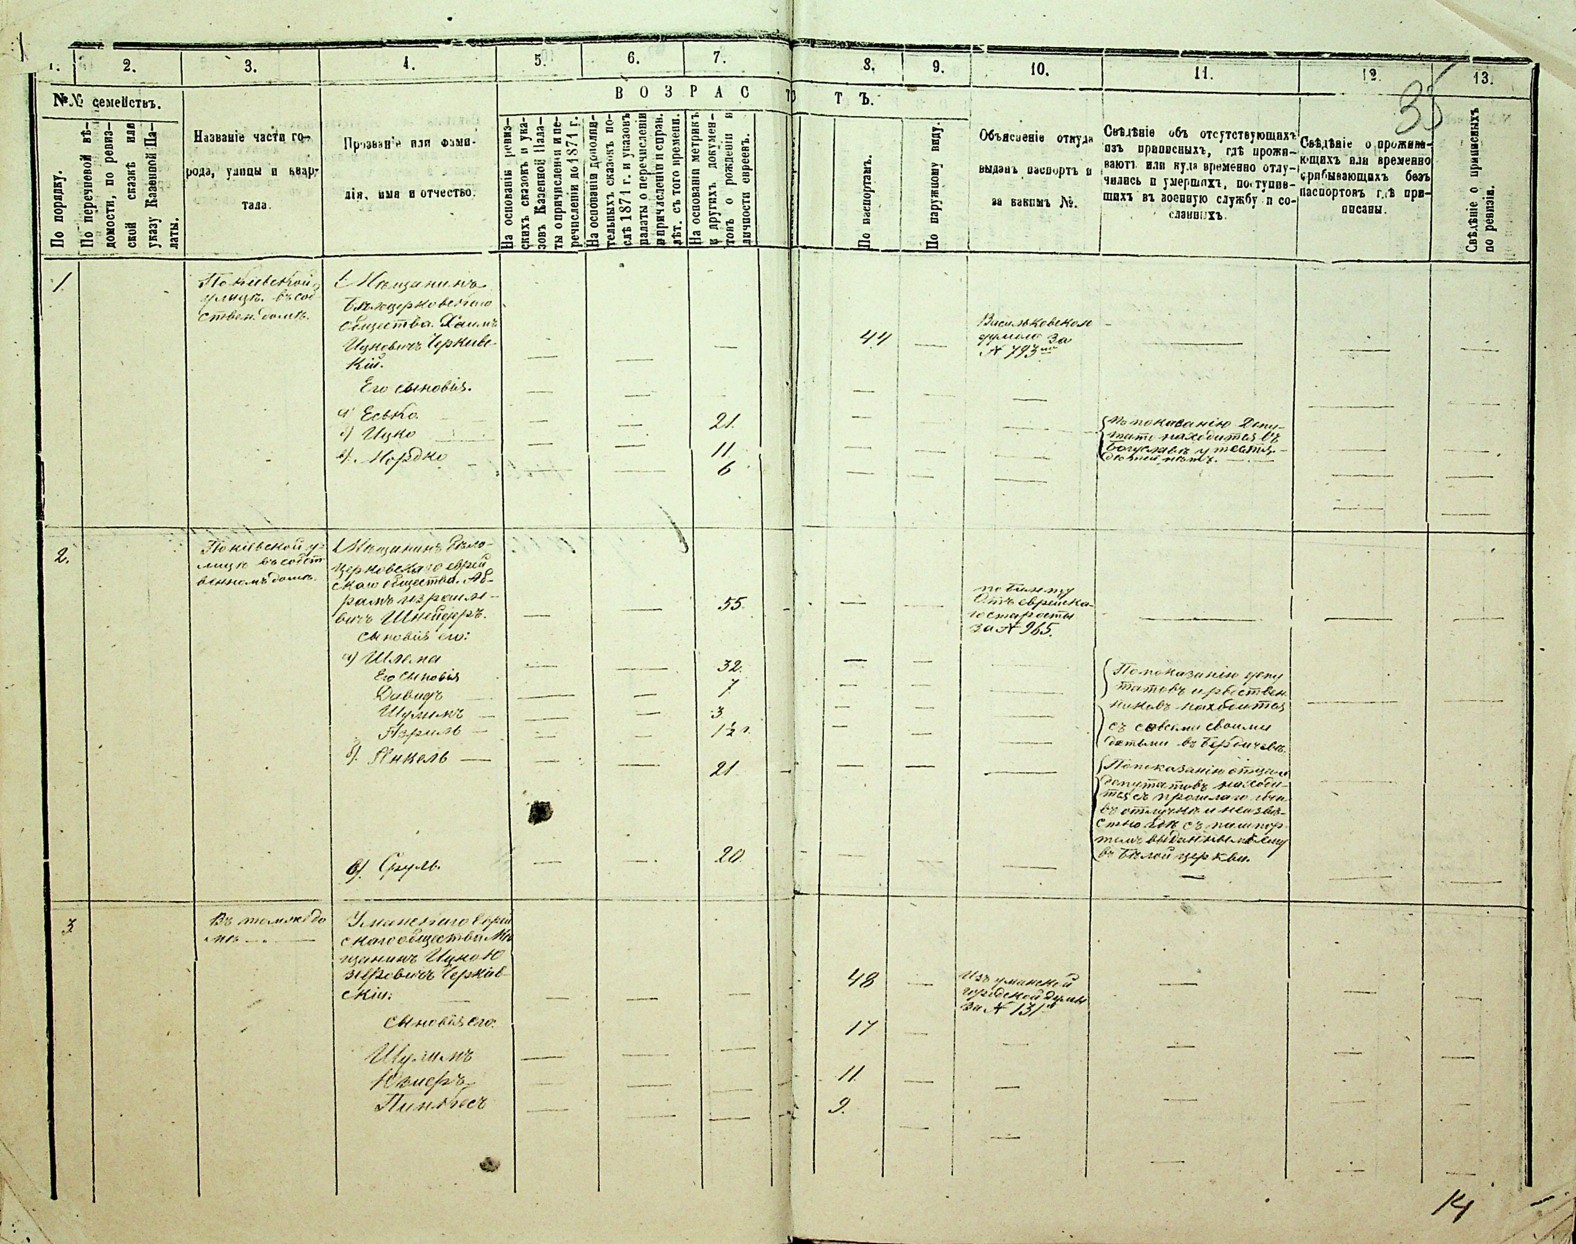 1. 2. 3. 4. 5. 6. 7. 8. 9. 10. 11. 12. 13.
35
№№ семействъ.
ВОЗРАСТЪ.
По порядку.
По перечневой вѣ-
домости, по ревиз-
ской сказкѣ или
указу Казенной Па-
латы.
Названіе части го-
рода, улицы и квар-
тала.
Прозваніе или фами-
лія, имя и отчество.
На основаніи ревиз-
скихъ сказокъ и ука-
зовъ Казенной Пала-
ты о причисленіи и пе-
речисленіи до 1871 г.
На основаніи дополни-
тельныхъ сказокъ по-
слѣ 1871 г. и указовъ
палаты о перечисленіи
и причисленіи и справ.
лѣт. съ того времени.
На основаніи метрикъ
и другихъ докумен-
товъ о рожденіи и
личности евреевъ.
По паспортамъ.
По наружному виду.
Объясненіе откуда
выданъ паспортъ и
за какимъ №.
Свѣдѣніе объ отсутствующихъ
изъ приписныхъ, гдѣ прожи-
ваютъ или куда временно отлу-
чились и умершихъ, поступив-
шихъ въ военную службу и со-
сланныхъ.
Свѣдѣніе о прожива-
ющихъ или временно
прибывающихъ безъ
паспортовъ гдѣ при-
писаны.
Свѣдѣніе о приписныхъ
по ревизіи.
1.
По Кіевской
улицѣ въ соб
ствен. домѣ.
Мѣщанинъ
Бѣлоцерковскаго
общества Хаимъ
Ицковичъ Черняв-
кій.
44
Васильковской
думою за
N 793
Его сыновія.
а) Есько 21.
б) Ицко 11
в) Мордко 6
По показанію Депу-
тата находится въ
Богуславѣ у тестя
2.
По Кіевской у-
лицѣ въ собст
венномъ домѣ.
Мѣщанинъ Бѣло-
церковскаго еврей
скаго общества Аб-
рамъ Израиле-
вичъ Шнейдеръ.
55.
по билету
Отъ еврейска-
го старосты
за N 965.
Сыновія его:
а) Шлема 32.
Его сыновія
Давидъ 7
Шулимъ 3
Азриль 1½ г.
По показанію депу
татовъ и родствен
никовъ находится
съ всѣми своими
дѣтьми въ Бердичевѣ.
б) Янкель 21
По показанію отца и
депутатовъ находи-
тся съ прошлаго года
въ отлучкѣ и неизвѣ-
стно гдѣ съ пашпор-
томъ выданнымъ ему
въ Бѣлой церкви.
в) Сруль 20
3
Въ томъ же до
мѣ
Уманскаго еврей
скаго общества Мѣ
щанинъ Ицко Ю
зефовичъ Черняв-
скій:
48
Изъ уманской
городской Думы
за N 131
сыновія его:
17
Шулимъ
Юзперъ 11
Пинхесъ 9.
14